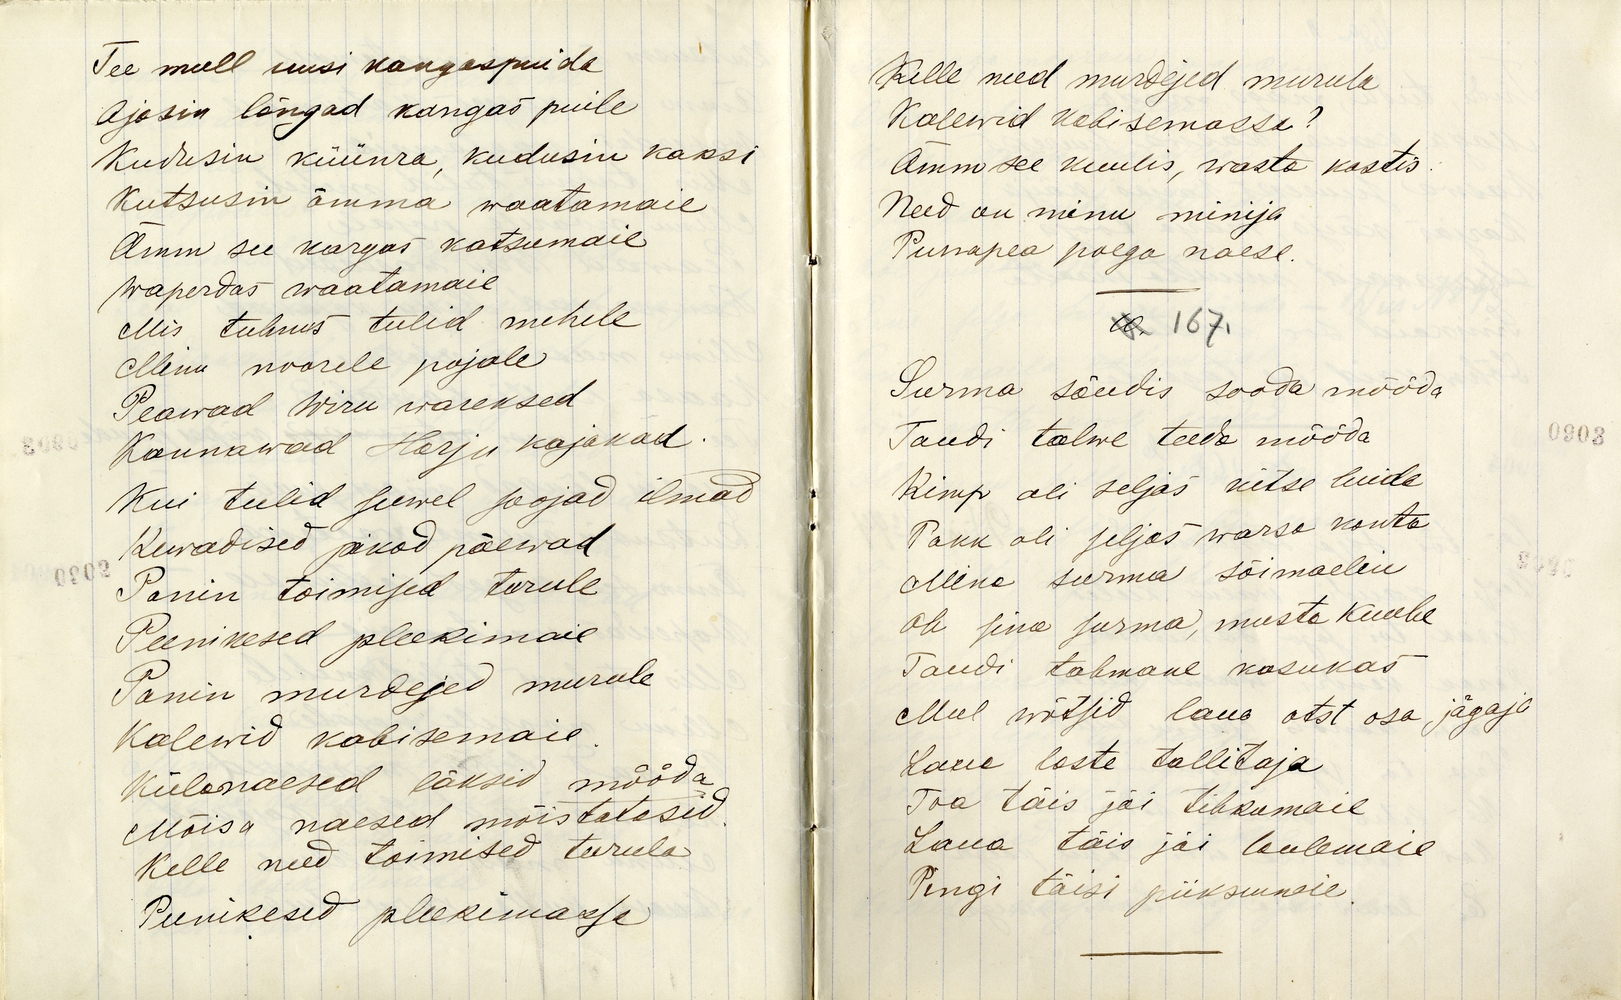 Tee mull uusi kangaspuida
Ajasin lõngad kangas puile
Kudusin küünra, kudusin kaksi
Kutsusin ämma waatamaie
Ämm see kargas katsumaie
Waperdas waatamaie
Mis tuhnus tulid mehele
Minu noorele pojale
Peawad Wiru wareksed
Kaunawad Harju kajakad.
Kui tulid suwel soojad ilmad
Kewadised pikad päewad
Panin toimised turule
Peenikesed pleekimaie
Panin murdejed murule
Kalewid kabisemaie.
Külanaesed läksid mööda
Mõisa naesed mõistatasid.
Kelle need toimised turula
Peenikesed pleekimassa
Kelle need murdejed murula
Kalewid kabisemassa?
Ämm see kuulis, wasta kostis:
Need on minu minija
Punapea poega naese.
167.
Surma sõudis sooda mööda
Taudi talwe teeda mööda
Kimp oli seljas witse luida
Pakk oli seljas warsa konta
Mina surma sõimaelin
Oh sina surma, musta kuube
Taudi tahmane kasukas
Mul wõtsid laua otst osa jägaja
Laua laste tallitaja
Toa täis jäi tihkumaie
Laua täis jäi laulemaie
Pingi täisi piiksumaie.
0903